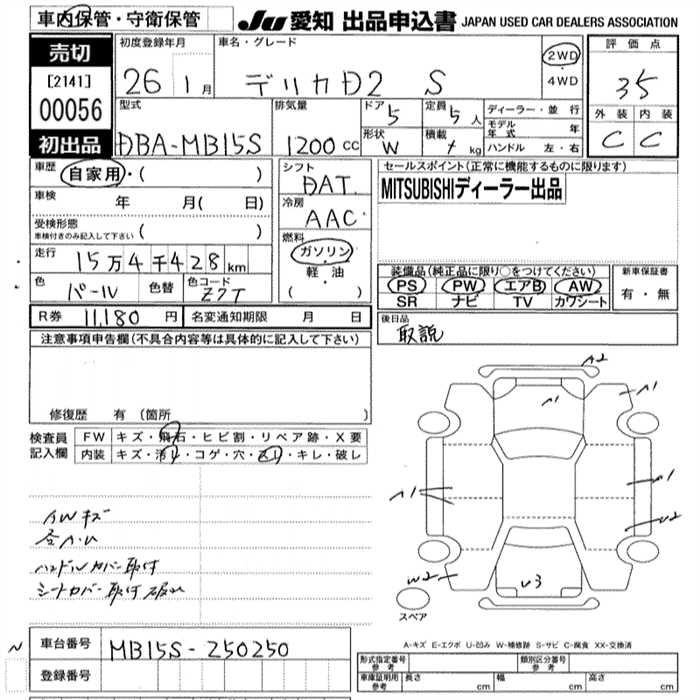 車内保管・守衛保管
JU 愛知 出品申込書 JAPAN USED CAR DEALERS ASSOCIATION
売切
[2141]
00056
初出品
初度登録年月
26 1月
車名・グレード
デリカD2 S
2WD
・
4WD
評価点
35
外装 内装
C C
型式
DBA-MB15S
排気量
1200 CC
ドア
5
定員
5人
形状
W
積載
kg
ディーラー・並行
モデル年式 年
ハンドル 左・右
車歴
自家用・( )
車検 年 月( 日)
受検形態
車検付きのみ記入して下さい ( )
走行
15万4千428km
色
パール
色替
色コード
Z7T
シフト
DAT
冷房
AAC
燃料
ガソリン
・
軽油
( )
セールスポイント(正常に機能するものに限ります)
MITSUBISHIディーラー出品
装備品(純正品に限り○をつけてください)
PS PW エアB AW
SR ナビ TV カワシート
新車保証書
有・無
R券 11,180 円
名変通知期限 月 日
後日品
取説
注意事項申告欄(不具合内容等は具体的に記入して下さい)
修復歴 有(箇所 )
検査員
記入欄
FW キズ・飛石・ヒビ割・リペア跡・X要
内装 キズ・汚レ・コゲ・穴・スレ・キレ・破レ
AWキズ
ハンドルカバー取付
シートカバー取付 破れ
A2
A1
A1
A1
A1
U2
W2
U3
スペア
A-キズ E-エクボ U-凹み W-補修跡 S-サビ C-腐食 XX-交換済
N
車台番号 MB15S-250250
登録番号
形式指定番号
参考
類別区分番号
参考
車庫証明用
参考
長さ cm 幅 cm 高さ cm